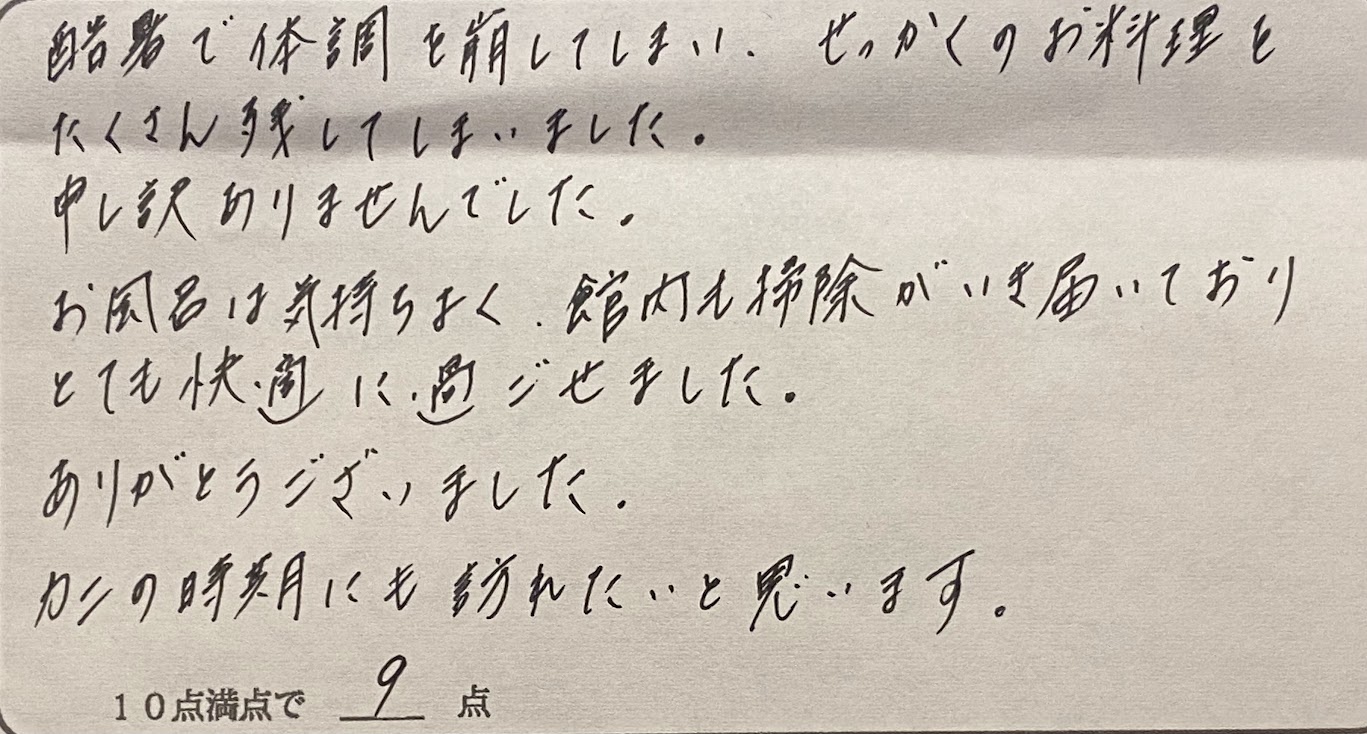 酷暑で体調を崩してしまい、せっかくのお料理を
たくさん残してしまいました。
申し訳ありませんでした。
お風呂は気持ちよく、館内も掃除がいき届いており
とても快適に過ごせました。
ありがとうございました。
カニの時期にも訪れたいと思います。
10点満点で 9 点